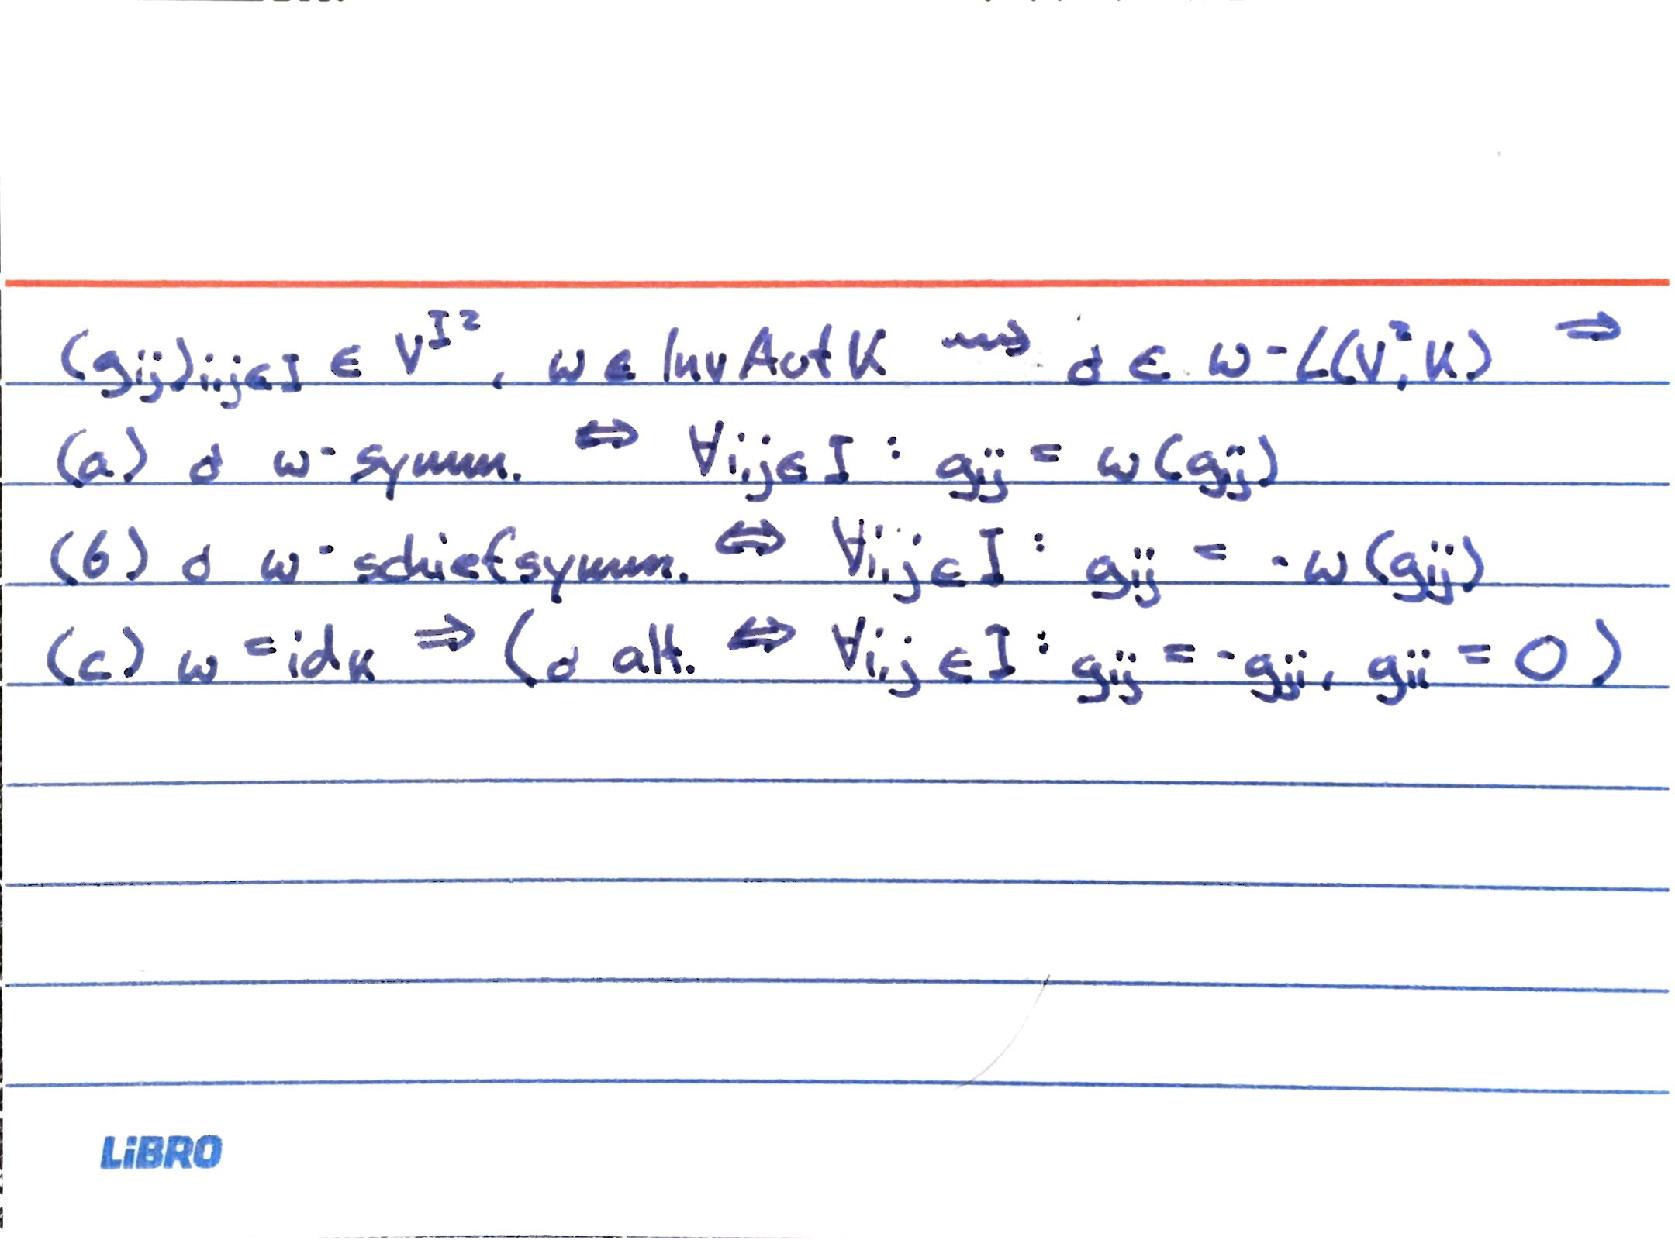 (gij)i,j∈I ∈ V^I², ω ∈ InvAut K ⇝ σ ∈ ω-L(V²,K) ⇒
(a) σ ω-symm. ⇔ ∀i,j∈I : gij = ω(gij)
(b) σ ω-schiefsymm. ⇔ ∀i,j∈I : gij = -ω(gij)
(c) ω = idK ⇒ (σ alt. ⇔ ∀i,j∈I : gij = -gji, gii = 0)
LiBRO